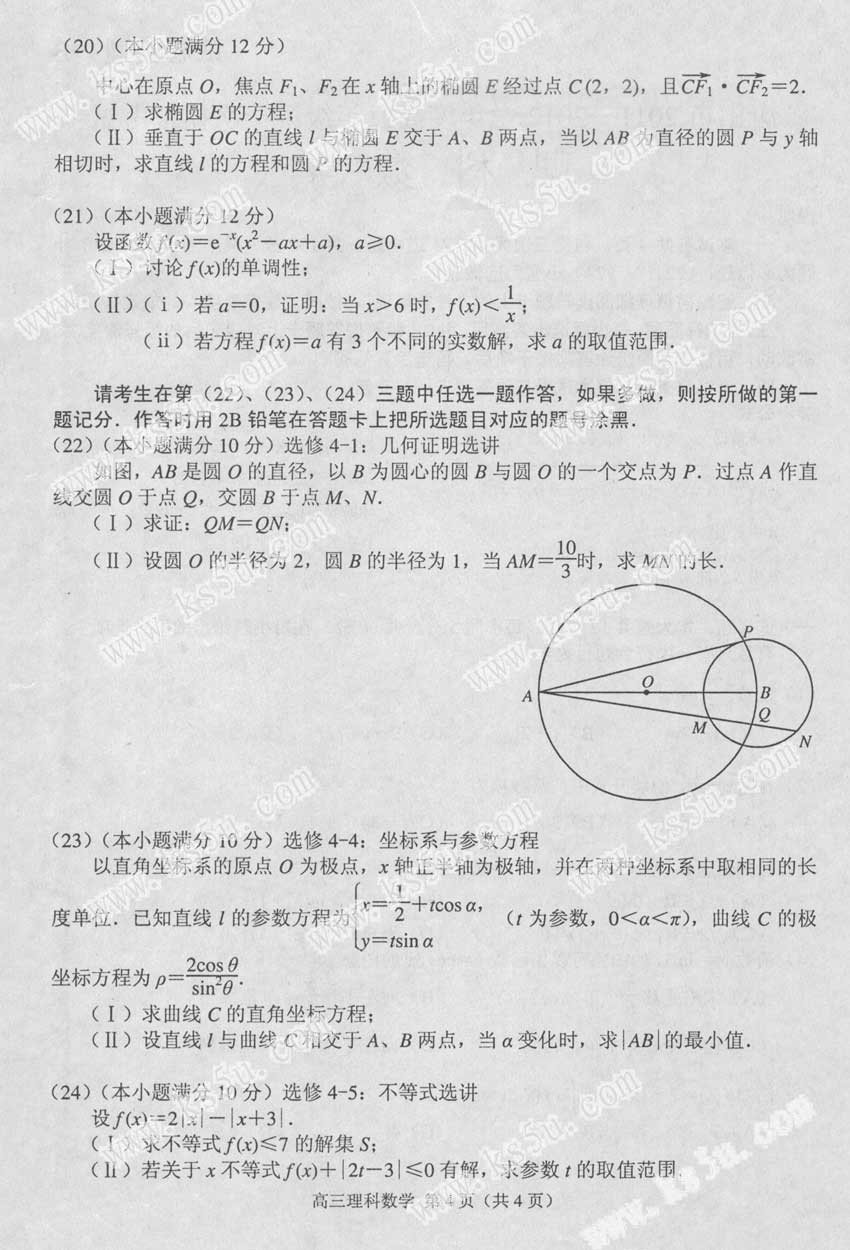 (20)(本小题满分 12 分)
中心在原点 O，焦点 F₁、F₂ 在 x 轴上的椭圆 E 经过点 C(2，2)，且 $\overrightarrow{CF_1}\cdot\overrightarrow{CF_2}=2$．
(Ⅰ) 求椭圆 E 的方程；
(Ⅱ) 垂直于 OC 的直线 l 与椭圆 E 交于 A、B 两点，当以 AB 为直径的圆 P 与 y 轴
相切时，求直线 l 的方程和圆 P 的方程．
(21)(本小题满分 12 分)
设函数 f(x)＝e⁻ˣ(x²－ax＋a)，a≥0．
(Ⅰ) 讨论 f(x)的单调性；
(Ⅱ)(ⅰ) 若 a＝0，证明：当 x＞6 时，f(x)＜$\frac{1}{x}$；
(ⅱ) 若方程 f(x)＝a 有 3 个不同的实数解，求 a 的取值范围．
请考生在第 (22)、(23)、(24) 三题中任选一题作答，如果多做，则按所做的第一
题记分．作答时用 2B 铅笔在答题卡上把所选题目对应的题号涂黑．
(22)(本小题满分 10 分) 选修 4-1：几何证明选讲
如图，AB 是圆 O 的直径，以 B 为圆心的圆 B 与圆 O 的一个交点为 P．过点 A 作直
线交圆 O 于点 Q，交圆 B 于点 M、N．
(Ⅰ) 求证：QM＝QN；
(Ⅱ) 设圆 O 的半径为 2，圆 B 的半径为 1，当 AM＝$\frac{10}{3}$时，求 MN 的长．
P
A
O
B
Q
M
N
(23)(本小题满分 10 分) 选修 4-4：坐标系与参数方程
以直角坐标系的原点 O 为极点，x 轴正半轴为极轴，并在两种坐标系中取相同的长
度单位．已知直线 l 的参数方程为$\begin{cases}x=\frac{1}{2}+t\cos\alpha，\\y=t\sin\alpha\end{cases}$ (t 为参数，0＜α＜π)，曲线 C 的极
坐标方程为 $\rho=\frac{2\cos\theta}{\sin^2\theta}$．
(Ⅰ) 求曲线 C 的直角坐标方程；
(Ⅱ) 设直线 l 与曲线 C 相交于 A、B 两点，当 α 变化时，求|AB|的最小值．
(24)(本小题满分 10 分) 选修 4-5：不等式选讲
设 f(x)＝2|x|－|x＋3|．
(Ⅰ) 求不等式 f(x)≤7 的解集 S；
(Ⅱ) 若关于 x 不等式 f(x)＋|2t－3|≤0 有解，求参数 t 的取值范围．
高三理科数学 第 4 页（共 4 页）
www.ks5u.com